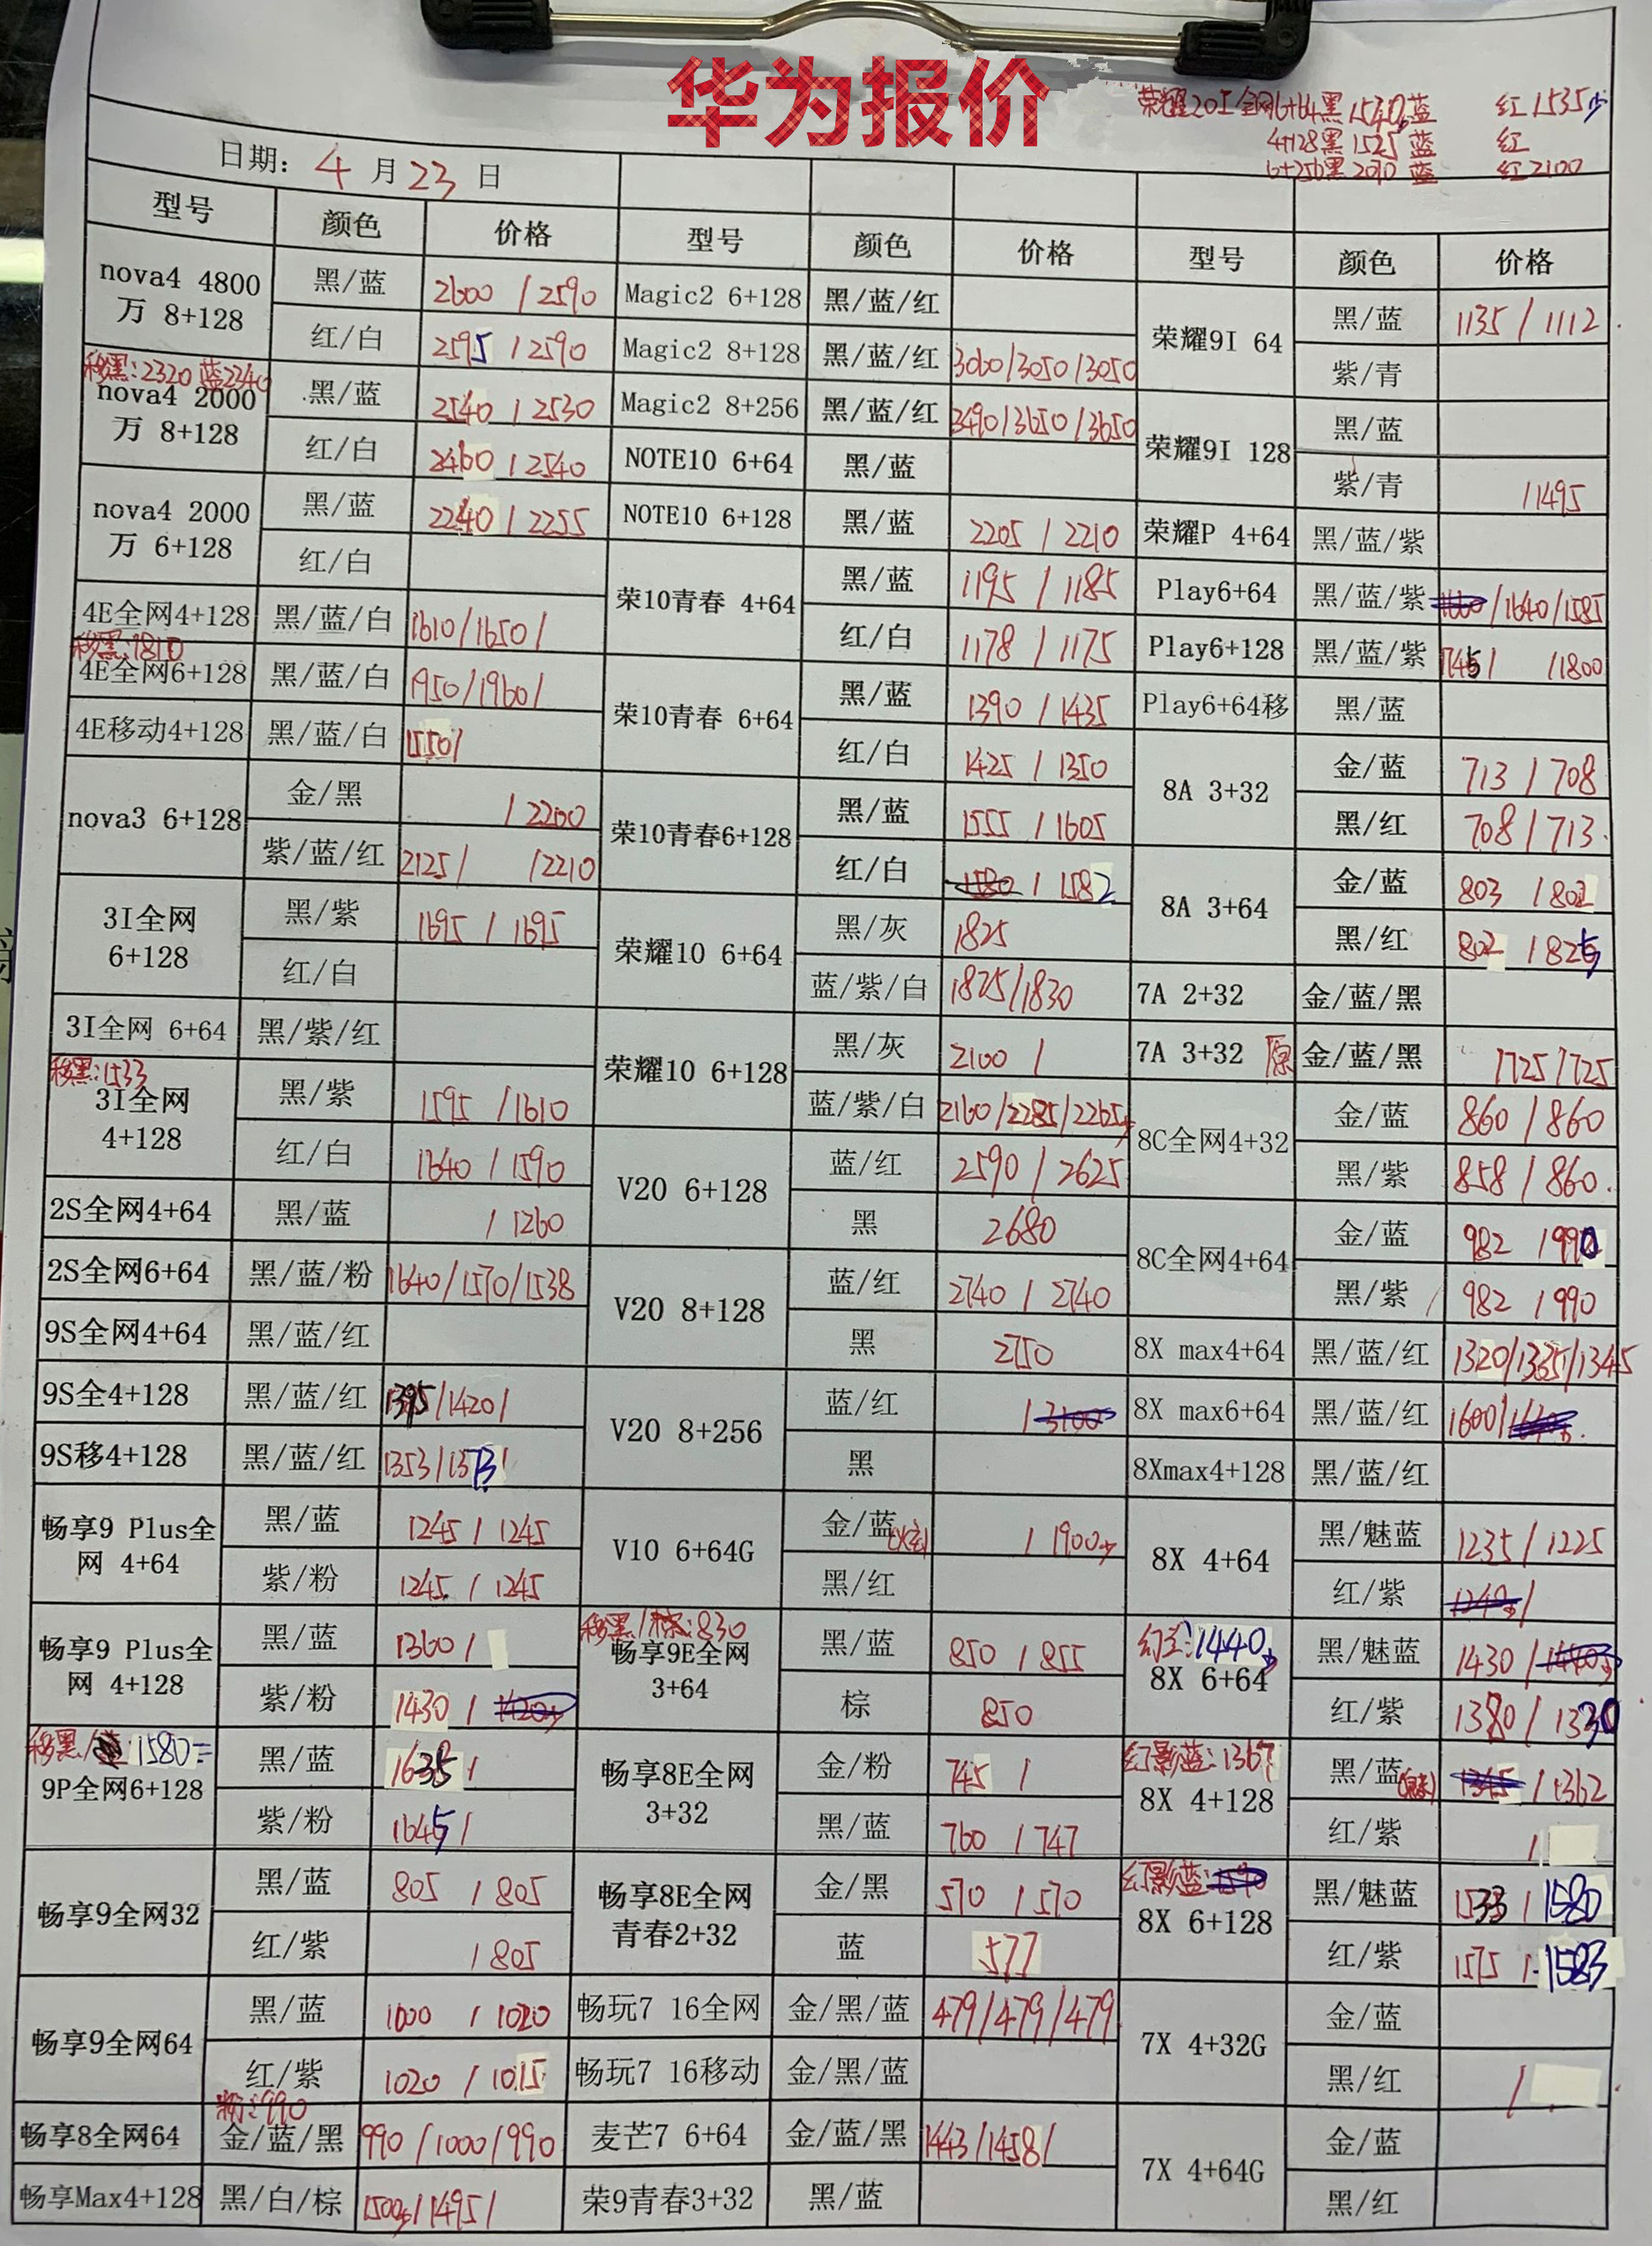 华为报价
荣耀20I 全网6+64黑1540少蓝 红1535少
4+128黑1525 蓝 红
6+256黑2070 蓝 红2100
日期: 4 月 23 日
型号 颜色 价格 型号 颜色 价格 型号 颜色 价格
nova4 4800万 8+128
黑/蓝 2600 / 2590
红/白 2595 / 2590
移黑:2320 蓝2240
nova4 2000万 8+128
黑/蓝 2540 / 2530
红/白 2460 / 2540
nova4 2000万 6+128
黑/蓝 2240 / 2255
红/白
4E全网4+128 黑/蓝/白 1610/1650/
移黑:1810
4E全网6+128 黑/蓝/白 1950/1960/
4E移动4+128 黑/蓝/白 1550/
nova3 6+128
金/黑 / 2200
紫/蓝/红 2125/ /2210
3I全网 6+128
黑/紫 1695 / 1695
红/白
3I全网 6+64 黑/紫/红
移黑:1533
3I全网 4+128
黑/紫 1595 /1610
红/白 1640 / 1590
2S全网4+64 黑/蓝 / 1260
2S全网6+64 黑/蓝/粉 1640/1570/1538
9S全网4+64 黑/蓝/红
9S全4+128 黑/蓝/红 1395/1420/
9S移4+128 黑/蓝/红 1353/1373/
畅享9 Plus全网 4+64
黑/蓝 1245 / 1245
紫/粉 1245 / 1245
畅享9 Plus全网 4+128
黑/蓝 1360 /
紫/粉 1430 /
移黑/ 1580=
9P全网6+128
黑/蓝 1635 /
紫/粉 1645 /
畅享9全网32
黑/蓝 805 / 805
红/紫 / 805
畅享9全网64
黑/蓝 1000 / 1020
红/紫 1020 / 1015
粉:990
畅享8全网64 金/蓝/黑 990 /1000/990
畅享Max4+128 黑/白/棕 1500少/1495/
Magic2 6+128 黑/蓝/红
Magic2 8+128 黑/蓝/红 3060/3050/3050
Magic2 8+256 黑/蓝/红 3490/3650/3650
NOTE10 6+64 黑/蓝
NOTE10 6+128 黑/蓝 2205 / 2210
荣10青春 4+64
黑/蓝 1195 / 1185
红/白 1178 / 1175
荣10青春 6+64
黑/蓝 1390 / 1435
红/白 1425 / 1350
荣10青春6+128
黑/蓝 1555 / 1605
红/白 1580 / 1582
荣耀10 6+64
黑/灰 1825
蓝/紫/白 1825/1830
荣耀10 6+128
黑/灰 2100 /
蓝/紫/白 2160/2285/2265少
V20 6+128
蓝/红 2590 / 2625
黑 2680
V20 8+128
蓝/红 2740 / 2740
黑 2750
V20 8+256
蓝/红 / 3100
黑
V10 6+64G
金/蓝 / 1900少
黑/红
移黑/棕:830
畅享9E全网 3+64
黑/蓝 850 / 855
棕 850
畅享8E全网 3+32
金/粉 745 /
黑/蓝 760 / 747
畅享8E全网 青春2+32
金/黑 570 / 570
蓝 577
畅玩7 16全网 金/黑/蓝 479/479/479
畅玩7 16移动 金/黑/蓝
麦芒7 6+64 金/蓝/黑 1443/1458/
荣9青春3+32 黑/蓝
荣耀9I 64
黑/蓝 1135 / 1112
紫/青
荣耀9I 128
黑/蓝
紫/青 /1495
荣耀P 4+64 黑/蓝/紫
Play6+64 黑/蓝/紫 /1640/1585
Play6+128 黑/蓝/紫 1745/ /1800
Play6+64移 黑/蓝
8A 3+32
金/蓝 713 / 708
黑/红 708 / 713
8A 3+64
金/蓝 803 / 802
黑/红 802 / 825
7A 2+32 金/蓝/黑
7A 3+32 原 金/蓝/黑 /725/725
8C全网4+32
金/蓝 860 / 860
黑/紫 858 / 860
8C全网4+64
金/蓝 982 / 990
黑/紫 982 / 990
8X max4+64 黑/蓝/红 1320/1335/1345
8X max6+64 黑/蓝/红 1600/
8Xmax4+128 黑/蓝/红
8X 4+64
黑/魅蓝 1235 / 1225
红/紫 1240少/
幻:1440少
8X 6+64
黑/魅蓝 1430 /
红/紫 1380 / 1330
幻影蓝:1367
8X 4+128
黑/蓝(魅) 1345 / 1362
红/紫 /
幻影蓝:
8X 6+128
黑/魅蓝 1533 / 1580
红/紫 1575 / 1583
7X 4+32G
金/蓝
黑/红 /
7X 4+64G
金/蓝
黑/红